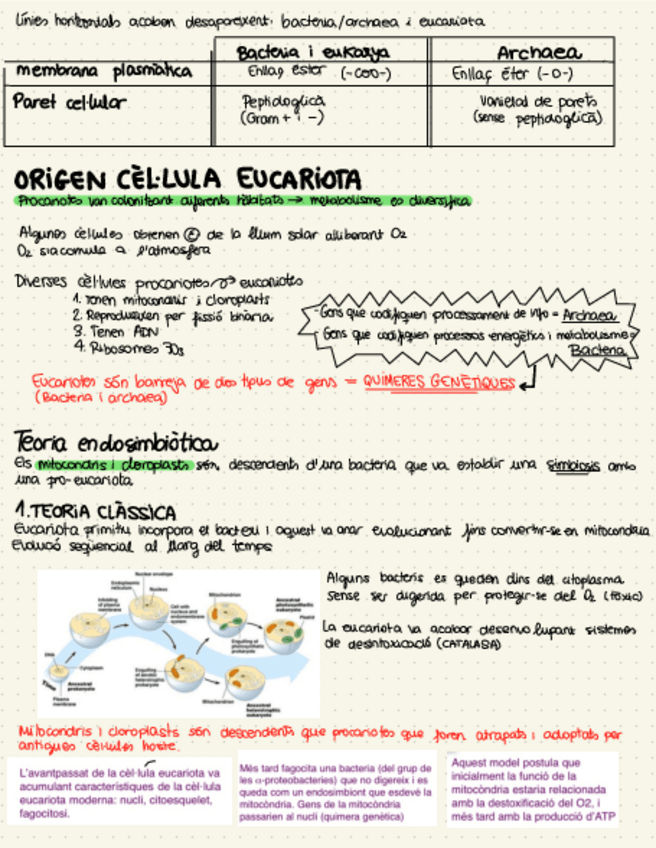 Línies horitzontals acaben desapareixent: bacteria/archaea i eucariota
Bacteria i eukarya
Archaea
membrana plasmàtica
Enllaç éster (-COO-)
Enllaç éter (-O-)
Paret cel·lular
Peptidoglicà
(Gram + i -)
Varietat de parets
(sense peptidoglicà)
ORIGEN CÈL·LULA EUCARIOTA
Procariotes van colonitzant diferents hàbitats → metabolisme es diversifica
Algunes cèl·lules obtenen Ⓔ de la llum solar alliberant O2
O2 s'acumula a l'atmosfera
Diverses cèl·lules procariotes → eucariotes
1. Tenen mitocondris i cloroplasts
2. Reprodueixen per fissió binària
3. Tenen ADN
4. Ribosomes 70s
- Gens que codifiquen processament de info = Archaea
- Gens que codifiquen processos energètics i metabolisme =
Bacteria
Eucariotes són barreja de dos tipus de gens = QUIMERES GENÈTIQUES
(Bacteria i archaea)
Teoria endosimbiòtica
Els mitocondris i cloroplasts són descendents d'una bacteria que va establir una simbiosis amb
una pro-eucariota
1. TEORIA CLÀSSICA
Eucariota primitiu incorpora el bacteri i aquest va anar evolucionant fins convertir-se en mitocondria
Evolució seqüencial al llarg del temps
Nuclear envelope
Endoplasmic reticulum
Nucleus
Infolding of plasma membrane
Cell with nucleus and endomembrane system
Mitochondrion
Ancestral photosynthetic eukaryote
Plastid
Engulfing of photosynthetic prokaryote
DNA
Cytoplasm
Ancestral prokaryote
Plasma membrane
Time
Engulfing of aerobic heterotrophic prokaryote
Mitochondrion
Ancestral heterotrophic eukaryote
Alguns bacteris es queden dins del citoplasma
sense ser digerida per protegir-se del O2 (tòxic)
La eucariota va acabar desenvolupant sistemes
de desintoxicació (CATALASA)
Mitocondris i cloroplasts són descendents que procariotes que foren atrapats i adoptats per
antigues cèl·lules hoste.
L'avantpassat de la cèl·lula eucariota va
acumulant característiques de la cèl·lula
eucariota moderna: nucli, citoesquelet,
fagocitosi.
Més tard fagocita una bacteria (del grup de
les α-proteobacteries) que no digereix i es
queda com un endosimbiont que esdevé la
mitocòndria. Gens de la mitocòndria
passarien al nucli (quimera genètica)
Aquest model postula que
inicialment la funció de la
mitocòndria estaria relacionada
amb la destoxificació del O2, i
més tard amb la producció d'ATP